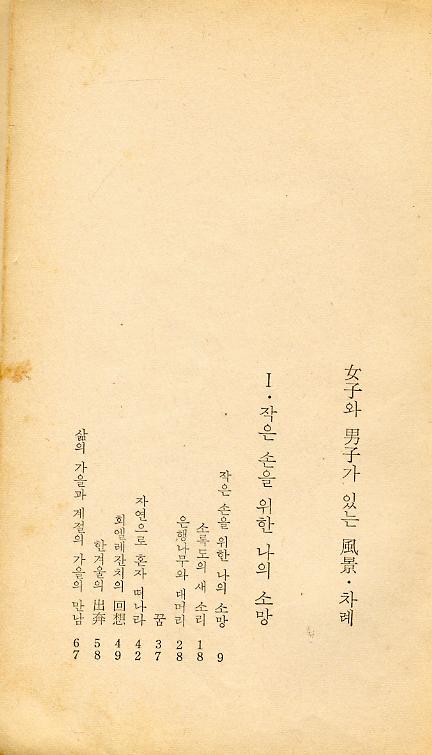 女子와 男子가 있는 風景·차례
Ⅰ·작은 손을 위한 나의 소망
작은 손을 위한 나의 소망 9
소록도의 새 소리 18
은행나무와 대머리 28
꿈 37
자연으로 혼자 떠나라 42
회엘레잔치의 回想 49
한겨울의 出奔 58
삶의 가을과 계절의 가을의 만남 67